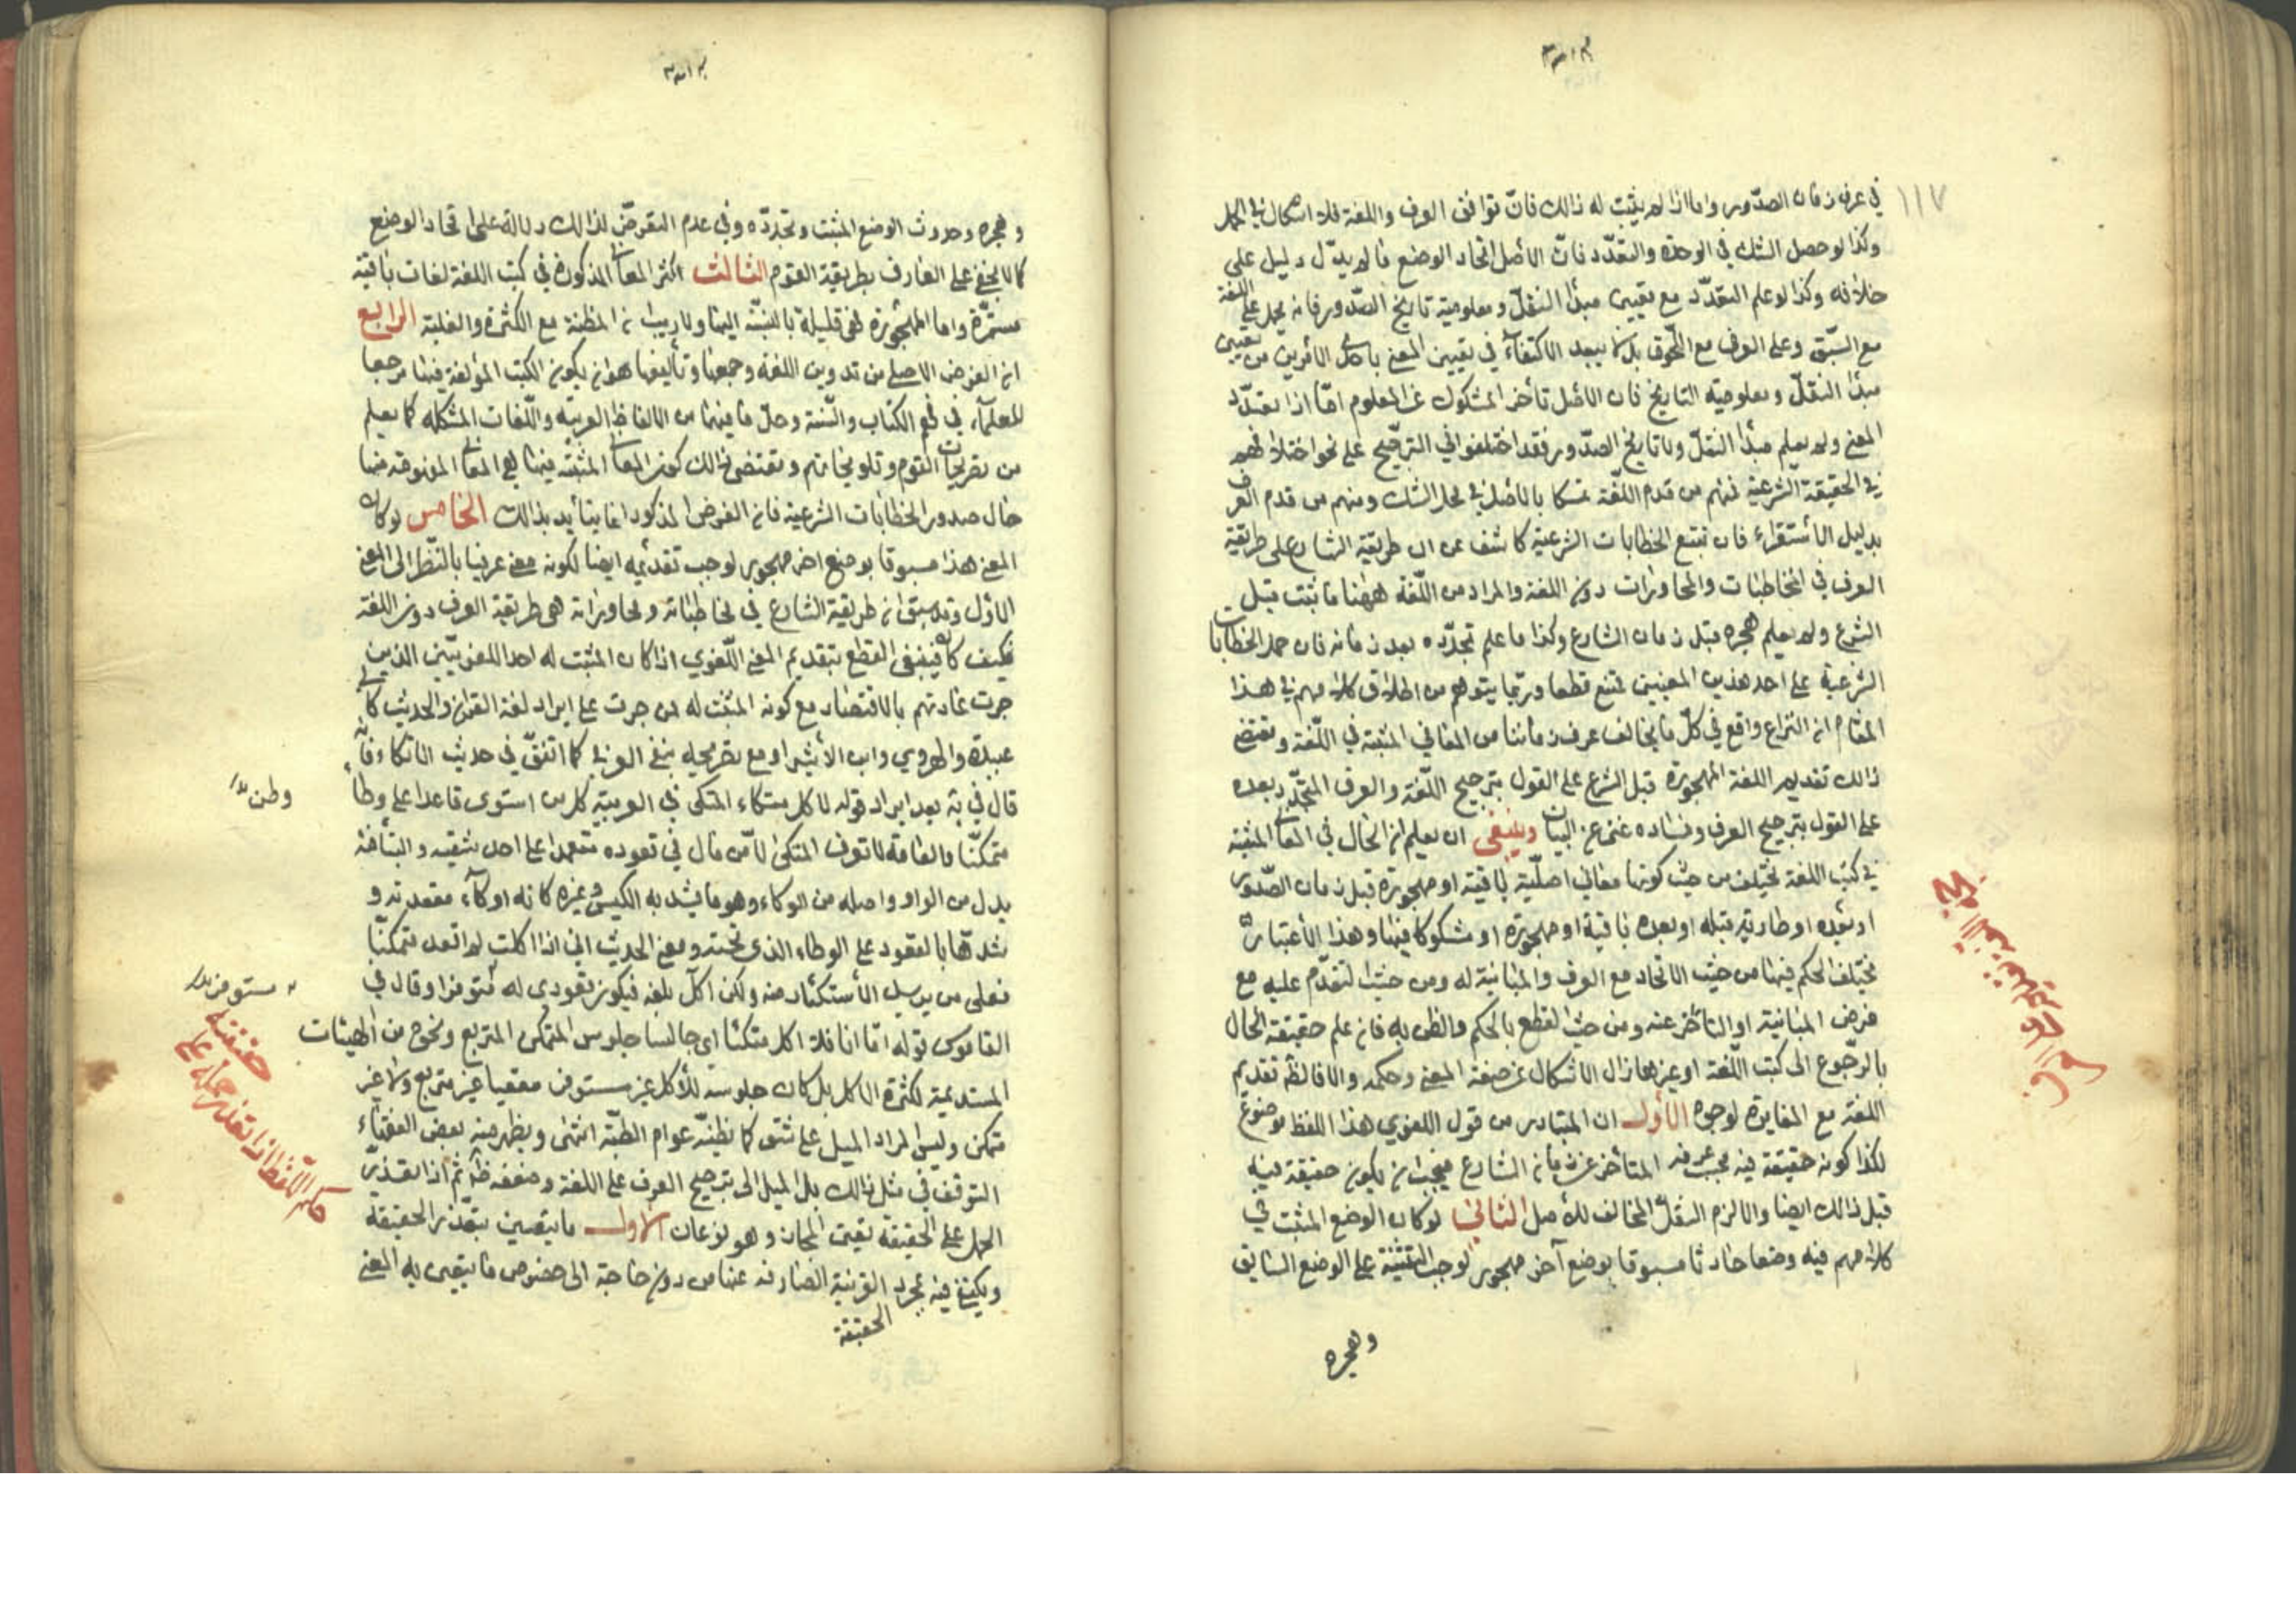 ١١٧
في عرف زمان الصدور واما اذا لم يثبت له ذالك فان توافق العرف واللغة فلا اشكال في الحمل
وكذا لو حصل الشك في الوحدة والتعدد فان الأصل اتحاد الوضع ما لم يدل دليل على
خلافه وكذا لو علم التعدد مع تعيين مبدأ النقل ومعلومية تاريخ الصدور فانه يحمل على اللغة
مع السبق وعلى العرف مع اللحوق بل لا يبعد الاكتفاء في تعيين المعنى باحد الأمرين من تعيين
مبدأ النقل ومعلومية التاريخ فان الأصل تأخر المشكوك عن المعلوم امّا اذا تعدّد
المعنى ولم يعلم مبدأ النقل ولا تاريخ الصدور فقد اختلفوا في الترجيح على نحو اختلافهم
في الحقيقة الشرعية فمنهم من قدم اللغة تمسكا بالأصل في محل الشك ومنهم من قدم العرف
بدليل الأستقراء فان تتبع الخطابات الشرعية كاشف عن ان طريقة الشارع على طريقة
العرف في المخاطبات والمحاورات دون اللغة والمراد من اللّغة ههنا ما ثبت قبل
الشرع ولم يعلم هجره قبل زمان الشارع وكذا ما علم تجدّده بعد زمانه فان حمل الخطابات
الشرعية على احد هذين المعنيين ممتنع قطعا وربما يتوهم من اطلاق كلامهم في هذا
المقام ان النزاع واقع في كلّ ما يخالف عرف زماننا من المعاني المثبتة في اللّغة ومقتضى
ذالك تقديم اللغة المهجورة قبل الشرع على القول بترجيح اللّغة والعرف المتجدّد بعده
على القول بترجيح العرف وفساده غنى عن البيان وينبغى ان يعلم ان الحال في المعاني المثبتة
في كتب اللغة تختلف من حيث كونها معاني اصلّية باقية او مهجورة قبل زمان الصّدور
او بعده او طارية قبله او بعده باقية او مهجورة او مشكوكا فيها وهذا الأعتبار
تختلف الحكم فيها من حيث الاتحاد مع العرف والمباينة له ومن حيث التقدّم عليه مع
فرض المباينة او التأخر عنه ومن حيث القطع بالحكم والظن به فان علم حقيقة الحال
بالرّجوع الى كتب اللّغة او غيرها زال الاشكال عن صفة المعنى وحكمه والا فالظ تقديم
اللغة مع المغايرة لوجوه الأول ان المتبادر من قول اللغوي هذا اللفظ موضوع
لكذا كونه حقيقة فيه بحسب عرفه المتأخر عن زمان الشارع فيجب ان يكون حقيقة فيه
قبل ذالك ايضا والا لزم النقل المخالف للأصل الثاني لو كان الوضع المثبت في
كلامهم فيه وضعا حادثا مسبوقا بوضع آخر مهجور لوجب التنبيه على الوضع السابق
وهجره
وهجره وحدوث الوضع المثبت وتجدّده وفي عدم التعرّض لذالك دلالة على اتحاد الوضع
كما لا يخفى على العارف بطريقة القوم الثالث اكثر المعاني المذكورة في كتب اللغة لغات باقية
مستمرّة واما المهجورة فهى قليلة بالنسبة اليها ولا ريب ان المظنة مع الكثرة والغلبة الرابع
ان الغرض الاصلي من تدوين اللغة وجمعها وتأليفها هو ان يكون الكتب المؤلفة فيها مرجعا
للعلماء في فهم الكتاب والسّنة وحلّ ما فيهما من الالفاظ العربية واللّغات المشكلة كما يعلم
من تصريحات القوم وتلويحاتهم ومقتضى ذالك كون المعاني المثبتة فيها هي المعاني المفهومة منها
حال صدور الخطابات الشرعية فان الغرض المذكور انما يتأيد بذالك الخامس لو كان
المعنى هذا مسبوقا بوضع اخر مهجور لوجب تقديمه ايضا لكونه معنى عرفيا بالنّظر الى المعنى
الاوّل وقد سبق ان طريقة الشارع في مخاطباته ومحاوراته هى طريقة العرف دون اللغة
فكيف كان فينبغى القطع بتقديم المعنى اللّغوي اذا كان المثبت له احد اللغويّين الذين
جرت عادتهم بالاقتصار مع كونه المثبت له ممن جرت على ايراد لغة القران والحديث كأبي
عبيدة والهروي وابن الأثير او مع تصريحه بنفي العرفي كما اتفق في حديث الاتكاء فانه
قال في ية بعد ايراد قوله لا اكل متكاء المتكى في العربية كل من استوى قاعدا على وطاء
متمكنّا والعامة لا تعرف المتكى الا من مال في قعوده معتمدا على احد شقيه والتاء فيه
بدل من الواو واصله من الوكاء وهو ما يشد به الكيس وغيره كانه اوكاء مقعدته و
شدّها بالقعود على الوطاء الذى تحته ومعنى الحديث انى اذا اكلت لم اقعد متمكنّا
فعلى من يريد الأستكثار منه ولكن اكل بلغة فيكون قعودى له مستوفزا وقال في
القاموس قوله اما انا فلا اكل متكئا اى جالسا جلوس المتمكن المتربع ونحوه من الهيئات
المستدعية لكثرة الاكل بل كان جلوسه للأكل غير مستوفز مقعيا غير متربع ولا غير
متمكن وليس المراد الميل على شق كما يظنّه عوام الطلبة انتهى ويظهر من بعض الفقهاء
التوقف في مثل ذالك بل الميل الى ترجيح العرف على اللغة وضعفه ظ ثم اذا تعذّر
الحمل على الحقيقة تعين المجاز وهو نوعان الاول ما يتعين بتعذر الحقيقة
ويكفي فيه مجرد القرينة الصارفة عنها من دون حاجة الى خصوص ما يتعين به المعنى
الحقيقة
مستوفز بدل
حكم اللّفظ اذا تعذر حمله على
حقيقته